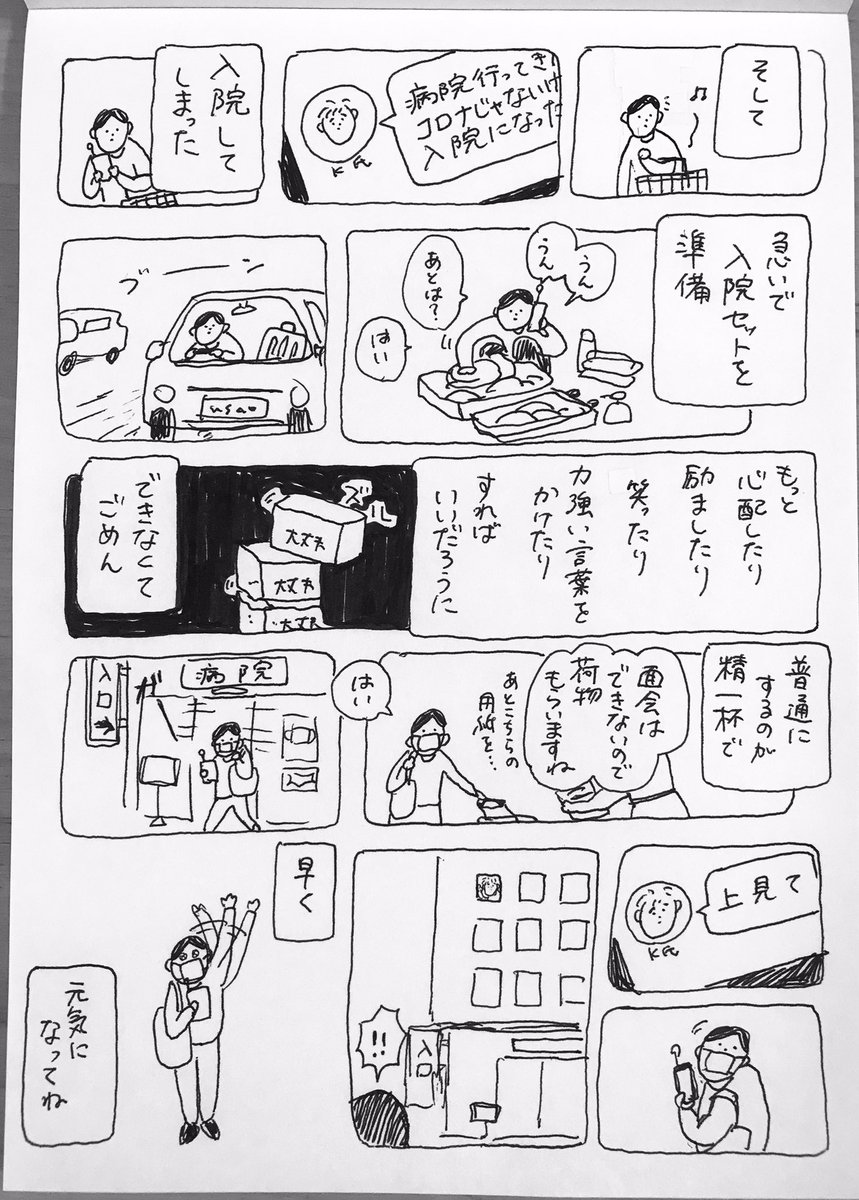 そして
♪
病院行ってき
コロナじゃないけ
入院になった
K氏
入院して
しまった
急いで
入院セットを
準備
うん
うん
あとは?
はい
ブーーン
もっと
心配したり
励ましたり
笑ったり
力強い言葉を
かけたり
すれば
いいだろうに
ズル
大丈夫
大丈夫
大丈夫
できなくて
ごめん
普通に
するのが
精一杯で
面会は
できないので
荷物
もらいますね
あとこちらの
用紙を…
はい
病院
入口
ガ
上見て
K氏
入口
!!
早く
元気に
なってね